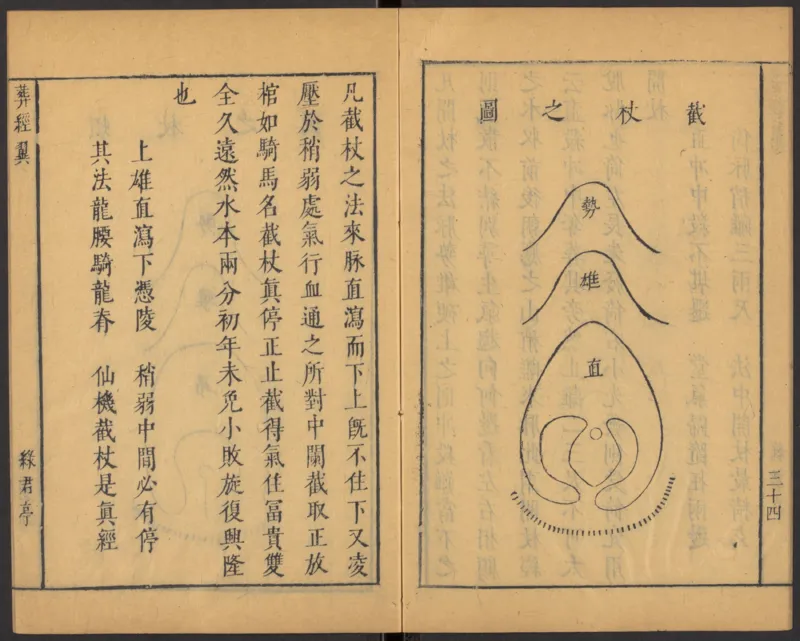 截杖之圖
勢
雄
直
三十四
凡截杖之法來脉直瀉而下上旣不住下又凌
壓於稍弱處氣行血通之所對中闌截取正放
棺如騎馬名截杖眞停正止截得氣住冨貴雙
全久遠然水本兩分初年未免小敗旋復興隆
也
上雄直瀉下憑陵　稍弱中間必有停
其法龍腰騎龍脊　仙機截杖是眞經
葬經翼
綠君亭